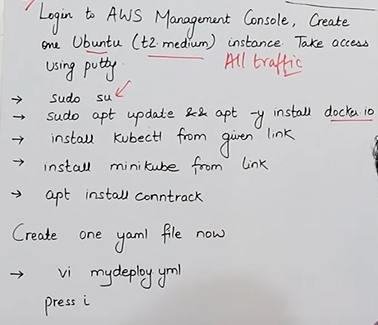 Login to AWS Management Console, Create
one Ubuntu (t2.medium) instance. Take access
using putty.
All traffic
→ sudo su
→ sudo apt update && apt -y install docker.io
→ install kubectl from given link
→ install minikube from link
→ apt install conntrack
Create one yaml file now
→ vi mydeploy.yml
press i